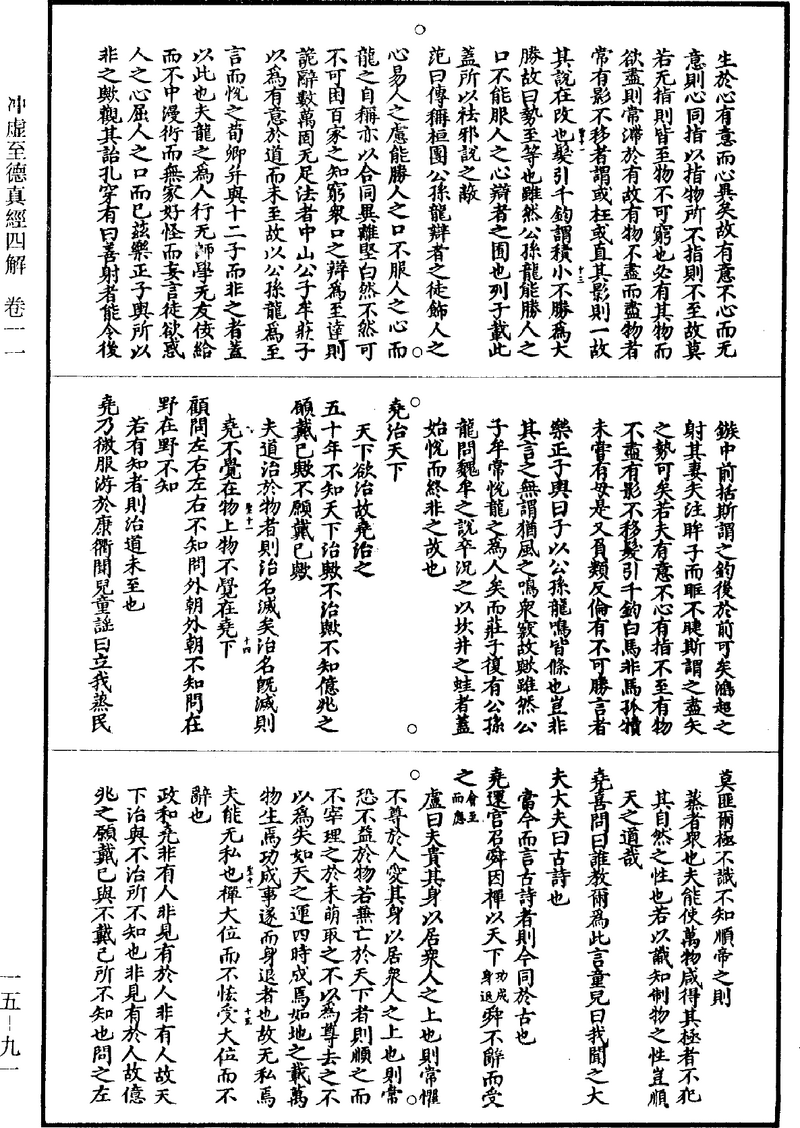 生於心有意而心異矣故有意不心而无
意則心同指以指物所不指則不至故莫
若无指則皆至物不可窮也必有其物而
欲盡則常滯於有故有物不盡而盡物者
常有影不移者謂或枉或直其影則一故
其說在改也髮引千鈞謂積小不勝爲大
勝故曰勢至等也雖然公孫龍能勝人之
口不能服人之心辯者之囿也列子載此
蓋所以祛邪說之蔽
范曰傳稱桓團公孫龍辯者之徒飾人之
心易人之慮能勝人之口不服人之心而
龍之自稱亦以合同異離堅白然不然可
不可困百家之知窮衆口之辯爲至達則
詭辭數萬固无足法者中山公子牟莊子
以爲有意於道而未至故以公孫龍爲至
言而悅之荀卿并與十二子而非之者蓋
以此也夫龍之爲人行无師學无友佞給
而不中漫衍而無家好怪而妄言徒欲惑
人之心屈人之口而已茲樂正子輿所以
非之歟觀其詒孔穿有曰善射者能令後
鏃中前括斯謂之鈞後於前可矣鴻超之
射其妻夫注眸子而眶不睫斯謂之盡矢
之勢可矣若夫有意不心有指不至有物
不盡有影不移髮引千鈞白馬非馬孤犢
未嘗有母是又負類反倫有不可勝言者
樂正子輿曰子以公孫龍鳴皆條也豈非
其言之無謂猶風之鳴衆竅故歟雖然公
子牟常悅龍之爲人矣而莊子復有公孫
龍問魏牟之說卒況之以坎井之蛙者蓋
始悅而終非之故也
堯治天下
天下欲治故堯治之
五十年不知天下治歟不治歟不知億兆之
願戴己歟不願戴己歟
夫道治於物者則治名滅矣治名旣滅則
堯不覺在物上物不覺在堯下
顧問左右左右不知問外朝外朝不知問在
野在野不知
若有知者則治道未至也
堯乃微服游於康衢聞兒童謠曰立我蒸民
莫匪爾極不識不知順帝之則
蒸者衆也夫能使萬物咸得其極者不犯
其自然之性也若以識知制物之性豈順
天之道哉
堯喜問曰誰敎爾爲此言童兒曰我聞之大
夫大夫曰古詩也
當今而言古詩者則今同於古也
堯還宮召舜因禪以天下功成身退舜不辭而受
之會至而應
盧曰夫貴其身以居衆人之上也則常懼
不尊於人愛其身以居衆人之上也則常
恐不益於物若兼亡於天下者則順之而
不宰理之於未萌取之不以爲尊去之不
以爲失如天之運四時成焉如地之載萬
物生焉功成事遂而身退者也故无私焉
夫能无私也禪大位而不恡受大位而不
辭也
政和堯非有人非見有於人非有人故天
下治與不治所不知也非見有於人故億
兆之願戴己與不戴己所不知也問之左
冲虛至德真經四解 卷一一
一五—九一